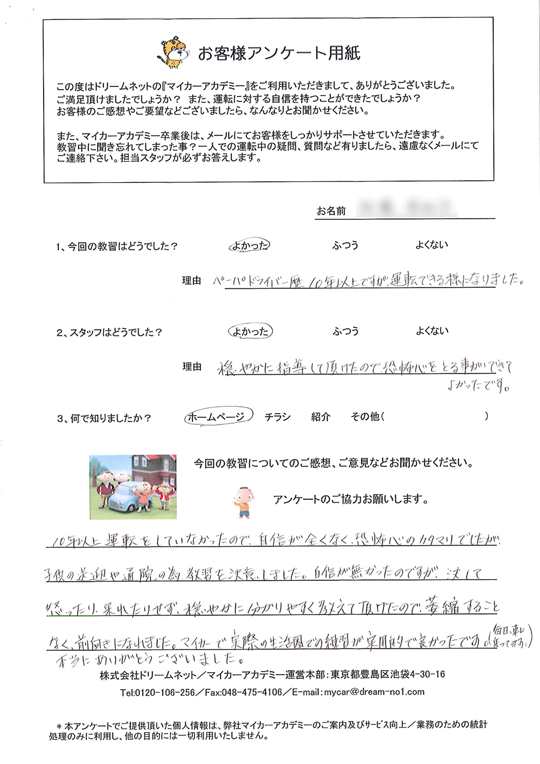 お客様アンケート用紙
この度はドリームネットの『マイカーアカデミー』をご利用いただきまして、ありがとうございました。
ご満足頂けましたでしょうか？ また、運転に対する自信を持つことができたでしょうか？
お客様のご感想やご要望などございましたら、なんなりとお聞かせください。
また、マイカーアカデミー卒業後は、メールにてお客様をしっかりサポートさせていただきます。
教習中に聞き忘れてしまった事？一人での運転中の疑問、質問など有りましたら、遠慮なくメールにて
ご連絡下さい。担当スタッフが必ずお答えします。
お名前
1、今回の教習はどうでした？ よかった ふつう よくない
理由 ペーパードライバー歴、10年以上ですが、運転できる様になりました。
2、スタッフはどうでした？ よかった ふつう よくない
理由 穏やかに指導して頂けたので恐怖心をとる事ができて
よかったです。
3、何で知りましたか？ ホームページ チラシ 紹介 その他( )
今回の教習についてのご感想、ご意見などお聞かせください。
アンケートのご協力お願いします。
10年以上運転をしていなかったので、自信が全くなく、恐怖心のカタマリでしたが、
子供の送迎や通院の為教習を決意しました。自信が無かったのですが、決して
怒ったり、呆れたりせず、穏やかに分かりやすく教えて頂けたので、萎縮すること
なく、前向きになれました。マイカーで実際の生活圏での練習が実用的で良かったです。(毎日、車に
乗ってます。)
本当にありがとうございました。
株式会社ドリームネット／マイカーアカデミー運営本部：東京都豊島区池袋4-30-16
Tel:0120-106-256／Fax:048-475-4106／E-mail：mycar@dream-no1.com
＊本アンケートでご提供頂いた個人情報は、弊社マイカーアカデミーのご案内及びサービス向上／業務のための統計
処理のみに利用し、他の目的には一切利用いたしません。